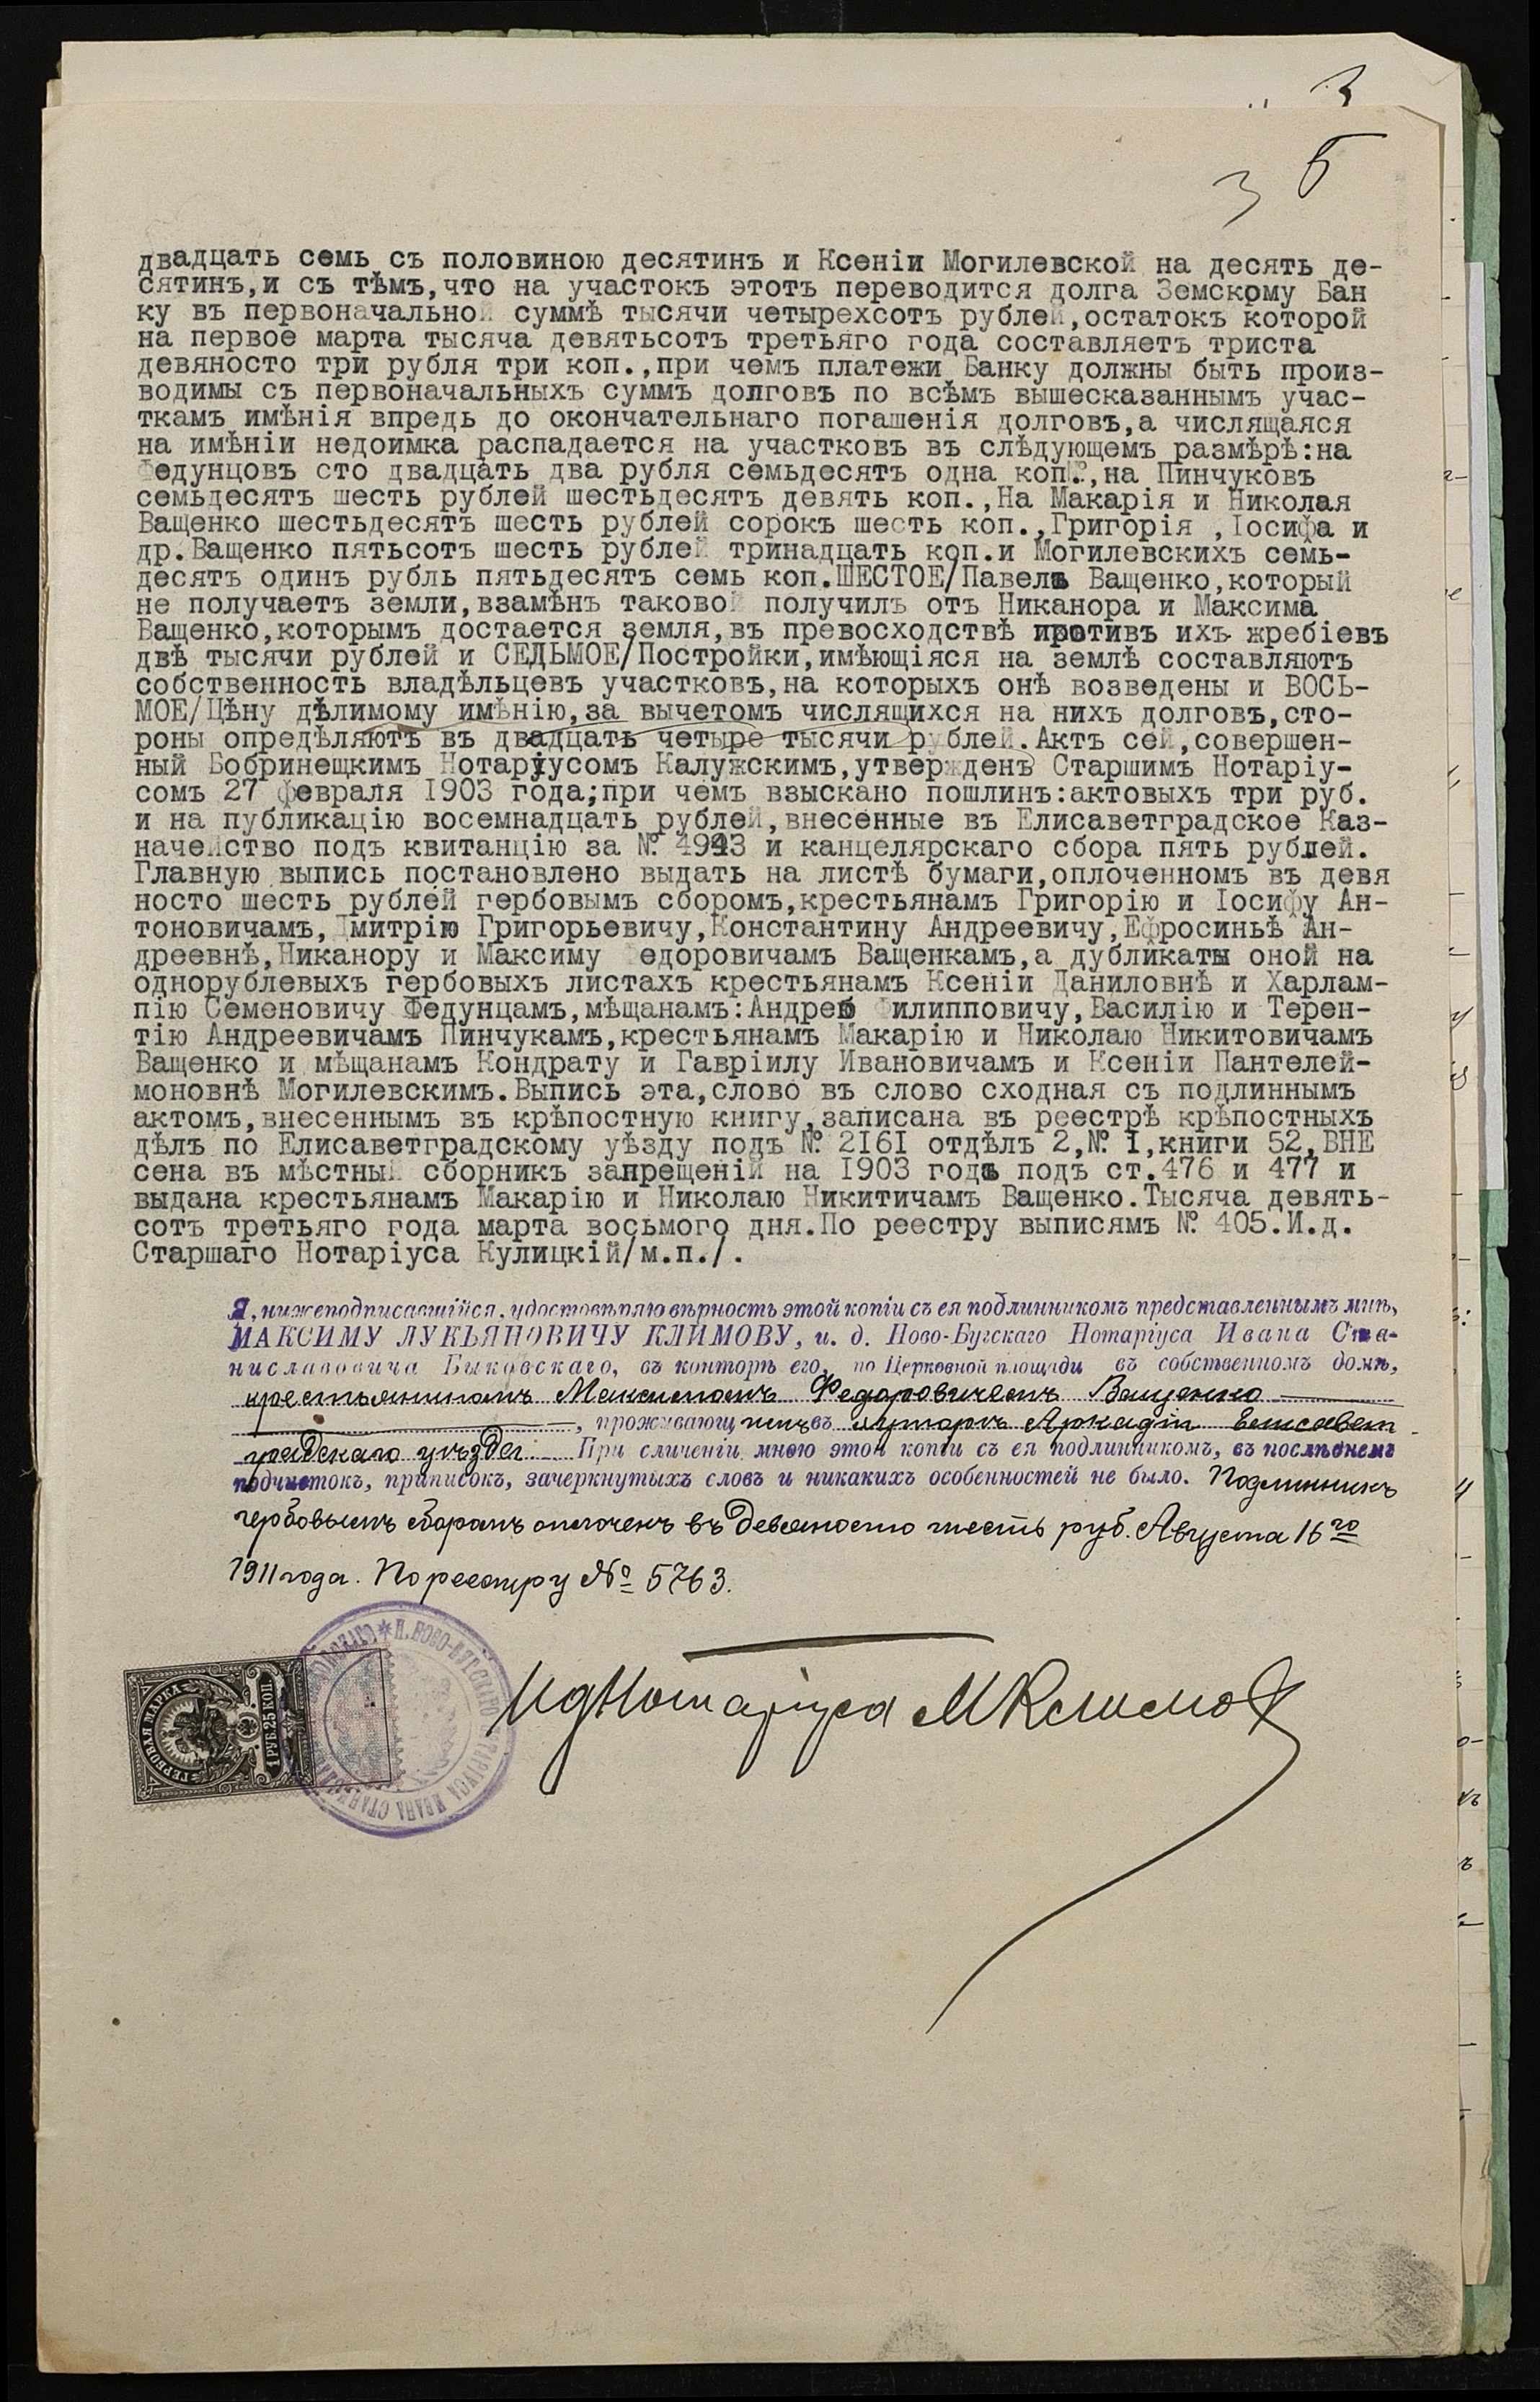 3
3 5
двадцать семь съ половиною десятинъ и Ксеніи Могилевской на десять де-
сятинъ,и съ тѣмъ,что на участокъ этотъ переводится долга Земскому Бан
ку въ первоначальной суммѣ тысячи четырехсотъ рублей,остатокъ которой
на первое марта тысяча девятьсотъ третьяго года составляетъ триста
девяносто три рубля три коп.,при чемъ платежи Банку должны быть произ-
водимы съ первоначальныхъ суммъ долговъ по всѣмъ вышесказаннымъ учас-
ткамъ имѣнія впредь до окончательнаго погашенія долговъ,а числящаяся
на имѣніи недоимка распадается на участковъ въ слѣдующемъ размѣрѣ:на
Федунцовъ сто двадцать два рубля семьдесятъ одна коп.,на Пинчуковъ
семьдесятъ шесть рублей шестьдесятъ девять коп.,На Макарія и Николая
Ващенко шестьдесятъ шесть рублей сорокъ шесть коп.,Григорія ,Іосифа и
др.Ващенко пятьсотъ шесть рублей тринадцать коп.и Могилевскихъ семь-
десятъ одинъ рубль пятьдесятъ семь коп.ШЕСТОЕ/Павелъ Ващенко,который
не получаетъ земли,взамѣнъ таковой получилъ отъ Никанора и Максима
Ващенко,которымъ достается земля,въ превосходствѣ противъ ихъ жребіевъ
двѣ тысячи рублей и СЕДЬМОЕ/Постройки,имѣющіяся на землѣ составляютъ
собственность владѣльцевъ участковъ,на которыхъ онѣ возведены и ВОСЬ-
МОЕ/Цѣну дѣлимому имѣнію,за вычетомъ числящихся на нихъ долговъ,сто-
роны опредѣляютъ въ двадцать четыре тысячи рублей.Актъ сей,совершен-
ный Бобринецкимъ Нотаріусомъ Калужскимъ,утвержденъ Старшимъ Нотаріу-
сомъ 27 февраля 1903 года;при чемъ взыскано пошлинъ:актовыхъ три руб.
и на публикацію восемнадцать рублей,внесенные въ Елисаветградское Каз-
начейство подъ квитанцію за № 4943 и канцелярскаго сбора пять рублей.
Главную выпись постановлено выдать на листѣ бумаги,оплоченномъ въ девя
носто шесть рублей гербовымъ сборомъ,крестьянамъ Григорію и Іосифу Ан-
тоновичамъ,Дмитрію Григорьевичу,Константину Андреевичу,Ефросиньѣ Ан-
древнѣ,Никанору и Максиму Федоровичамъ Ващенкамъ,а дубликаты оной на
однорублевыхъ гербовыхъ листахъ крестьянамъ Ксеніи Даниловнѣ и Харлам-
пію Семеновичу Федунцамъ,мѣщанамъ:Андрею Филипповичу,Василію и Терен-
тію Андреевичамъ Пинчукамъ,крестьянамъ Макарію и Николаю Никитовичамъ
Ващенко и мѣщанамъ Кондрату и Гавріилу Ивановичамъ и Ксеніи Пантелей-
моновнѣ Могилевскимъ.Выпись эта,слово въ слово сходная съ подлиннымъ
актомъ,внесеннымъ въ крѣпостную книгу,записана въ реестрѣ крѣпостныхъ
дѣлъ по Елисаветградскому уѣзду подъ № 2161 отдѣлъ 2,№ 1,книги 52,ВНЕ
сена въ мѣстный сборникъ запрещеній на 1903 годъ подъ ст.476 и 477 и
выдана крестьянамъ Макарію и Николаю Никитичамъ Ващенко.Тысяча девять-
сотъ третьяго года марта восьмого дня.По реестру выписямъ № 405.И.д.
Старшаго Нотаріуса Кулицкій/м.п./.
Я, нижеподписавшійся, удостовѣряю вѣрность этой копіи съ ея подлинникомъ представленнымъ мнѣ,
МАКСИМУ ЛУКЬЯНОВИЧУ КЛИМОВУ, и. д. Ново-Бугскаго Нотаріуса Ивана Ста-
ниславовича Быковскаго, въ конторѣ его, по Церковной площади въ собственномъ домѣ,
крестьяниномъ Максимомъ Федоровичемъ Ващенко
, проживающимъ въ хуторѣ Аркадіи Елисавет
градскаго уѣзда При сличеніи мною этой копіи съ ея подлинникомъ, въ послѣднемъ
подчистокъ, приписокъ, зачеркнутыхъ словъ и никакихъ особенностей не было. Подлинникъ
гербовымъ сборомъ оплоченъ въ девяносто шесть руб. Августа 16го
1911 года. По реестру № 5763.
И.Д. НОВО-БУГСКАГО НОТАРІУСА ИВАНА СТАНИСЛАВОВИЧА
ГЕРБОВАЯ МАРКА
1 РУБ.25 КОП.
Ид Нотаріуса М Климов